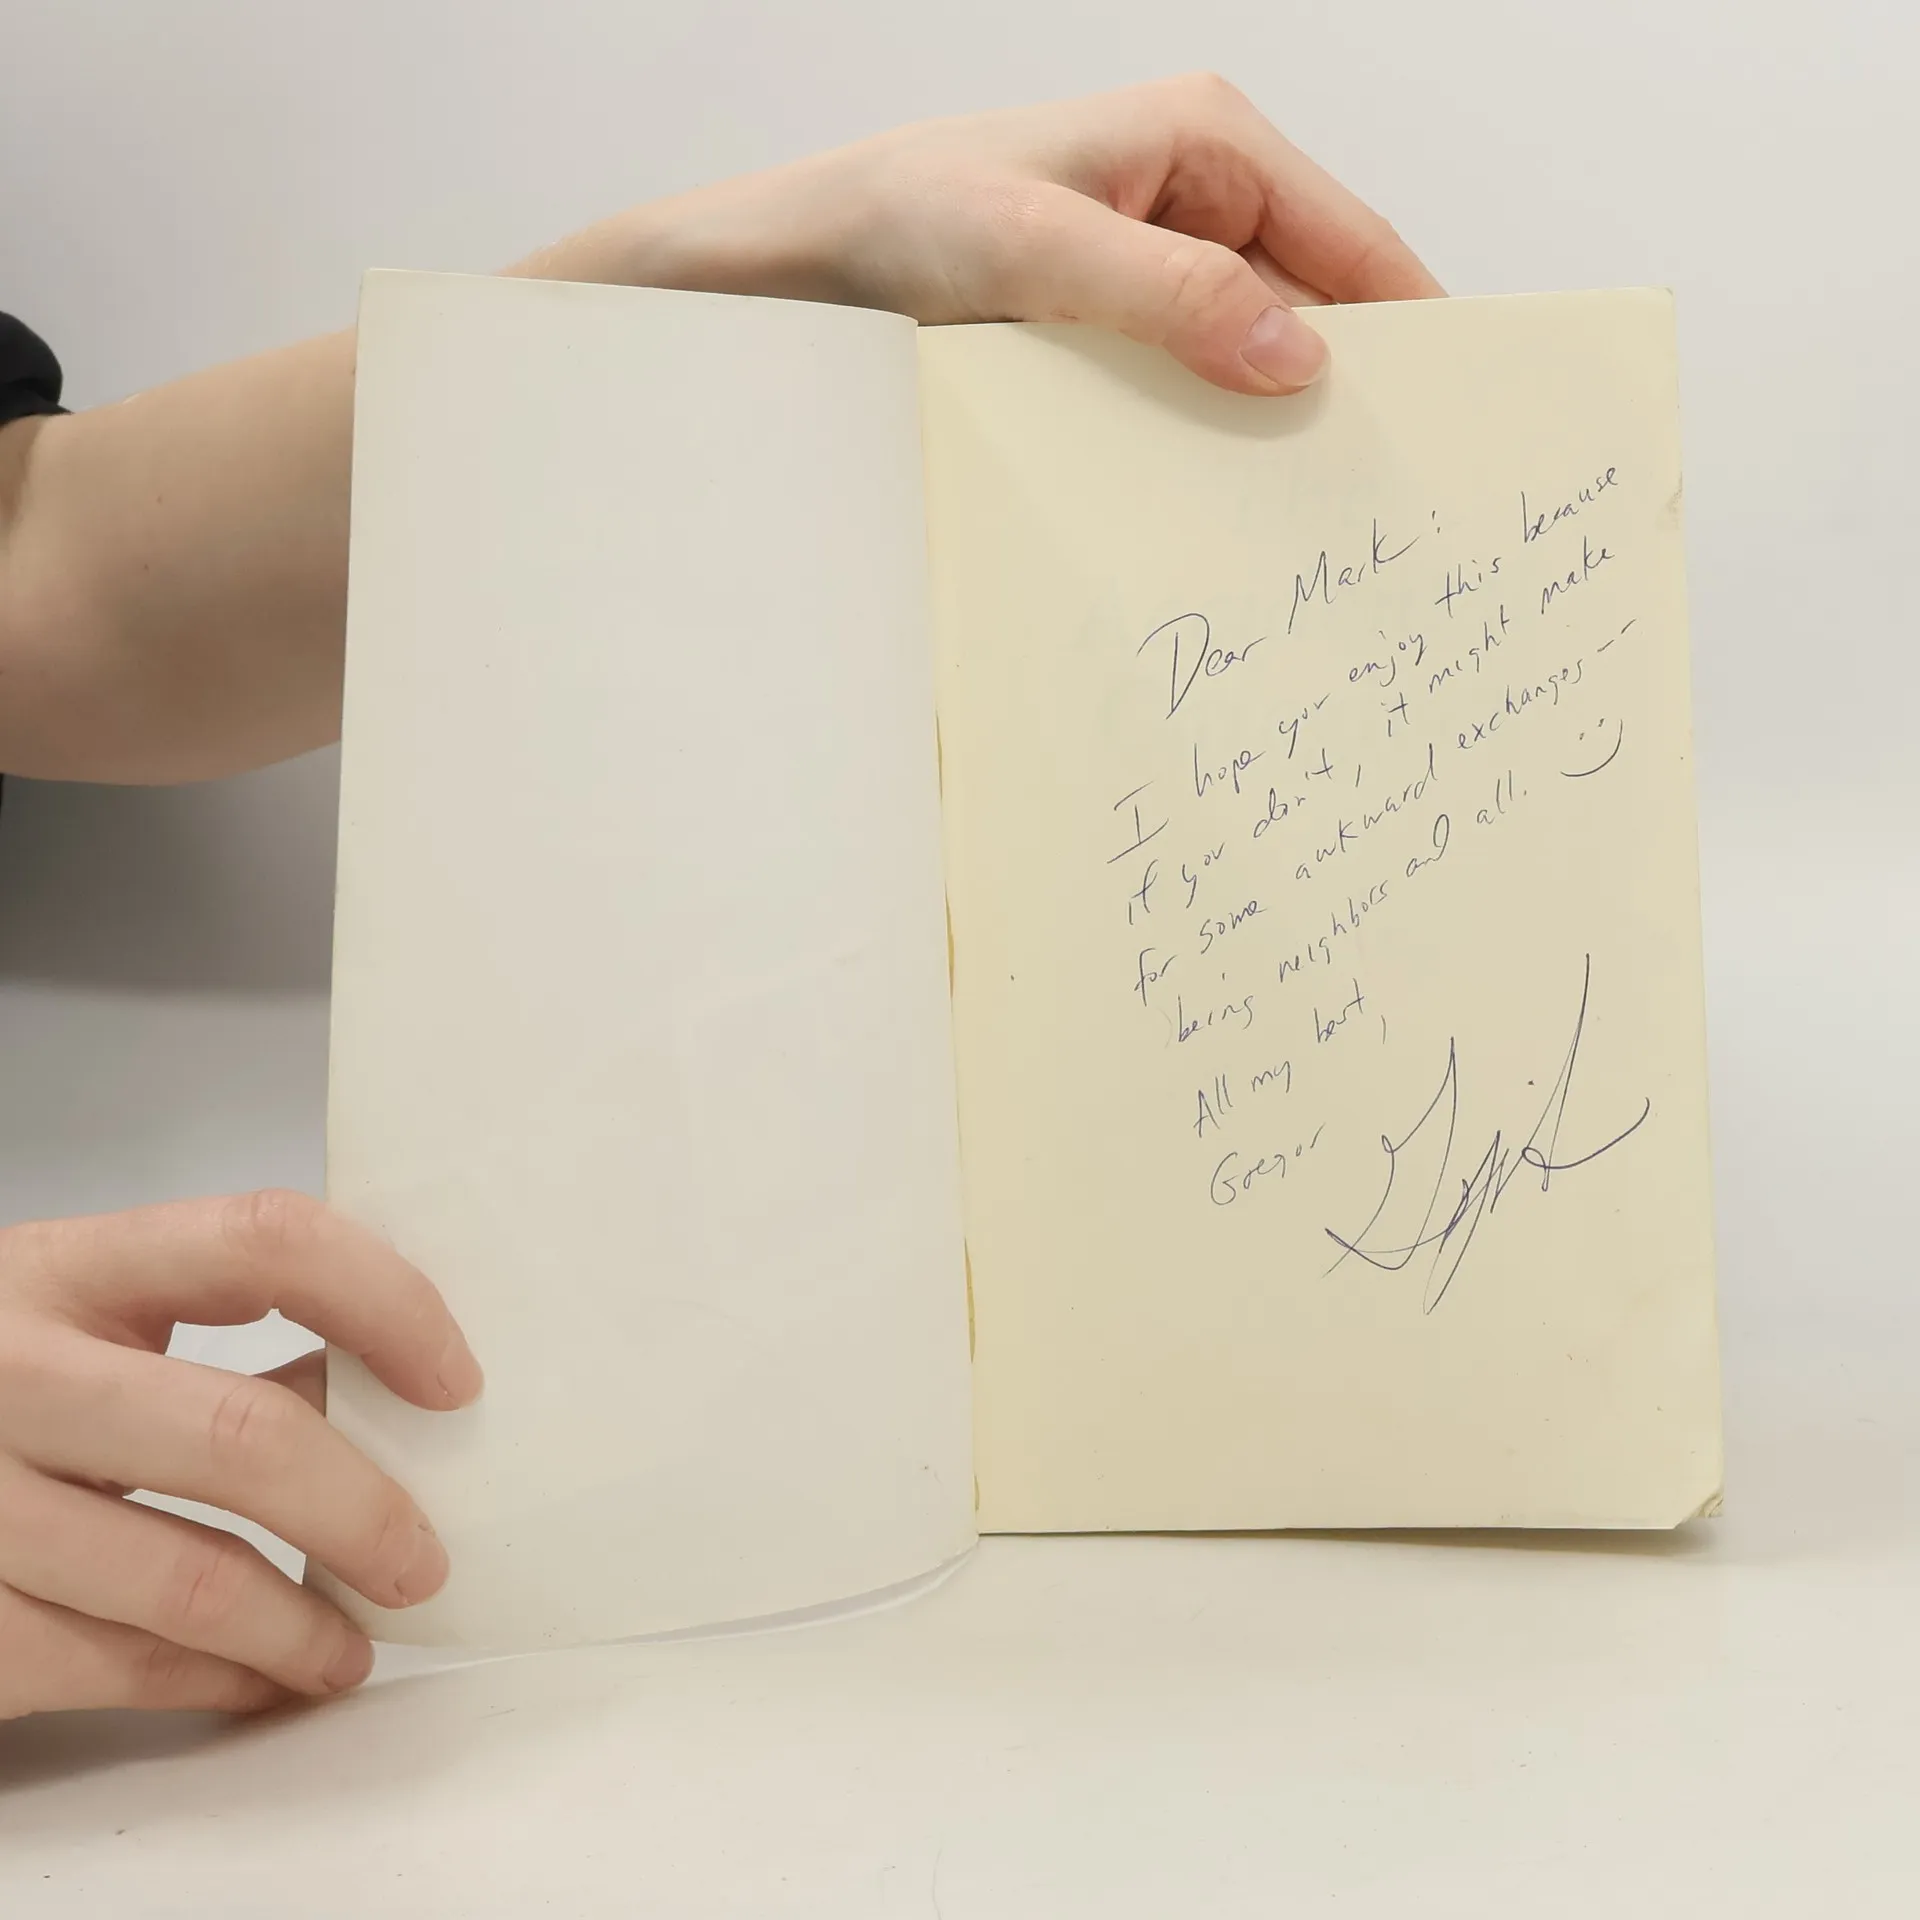 Dear Mark:
I hope you enjoy this because
if you don't, it might make
for some awkward exchanges--
being neighbors and all. :)
All my best,
Gregor